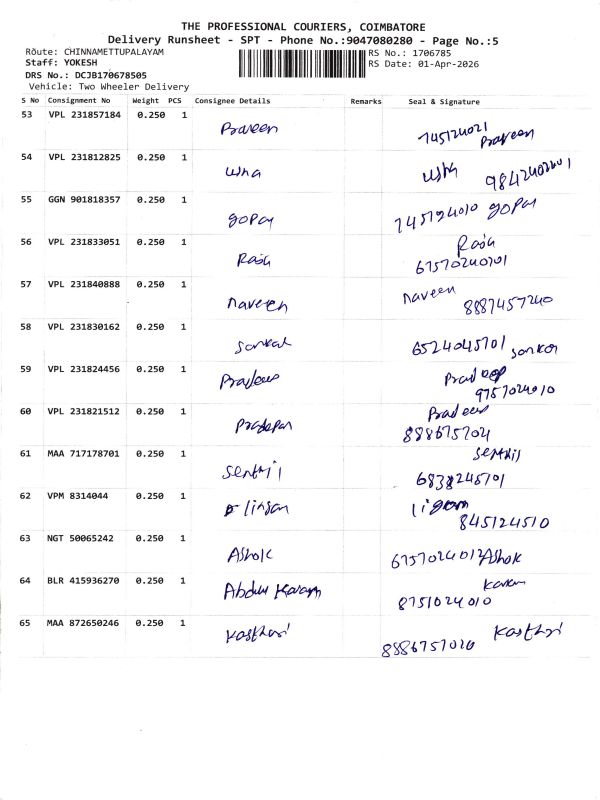 THE PROFESSIONAL COURIERS, COIMBATORE
Delivery Runsheet - SPT - Phone No.:9047080280 - Page No.:5
Route: CHINNAMETTUPALAYAM RS No.: 1706785
Staff: YOKESH RS Date: 01-Apr-2026
DRS No.: DCJB170678505
Vehicle: Two Wheeler Delivery
S No Consignment No Weight PCS Consignee Details Remarks Seal & Signature
53 VPL 231857184 0.250 1 Praveen 745124021 Praveen
54 VPL 231812825 0.250 1 usha usha
55 GGN 901818357 0.250 1 gopal 745124010 gopal
56 VPL 231833051 0.250 1 Raja Raja
67570240701
57 VPL 231840888 0.250 1 naveen naveen
8887457240
58 VPL 231830162 0.250 1 Sankar 6524045701 Sankar
59 VPL 231824456 0.250 1 Pradeep Pradeep
9757024010
60 VPL 231821512 0.250 1
888675704
61 MAA 717178701 0.250 1 Senthil Senthil
6838245701
62 VPM 8314044 0.250 1 lingam
845124510
63 NGT 50065242 0.250 1 Ashok 6757024012 Ashok
64 BLR 415936270 0.250 1 Abdul Karam
8751024010
65 MAA 872650246 0.250 1 Kasthuri Kasthuri
8886757020